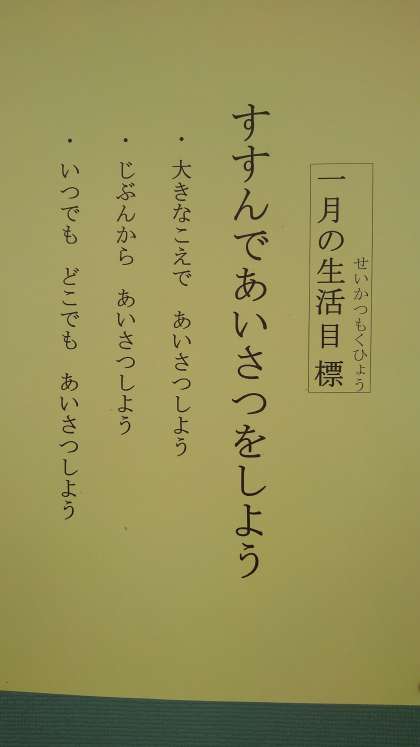 一月の生活目標
せいかつもくひょう
すすんであいさつをしよう
・大きなこえで　あいさつしよう
・じぶんから　あいさつしよう
・いつでも　どこでも　あいさつしよう